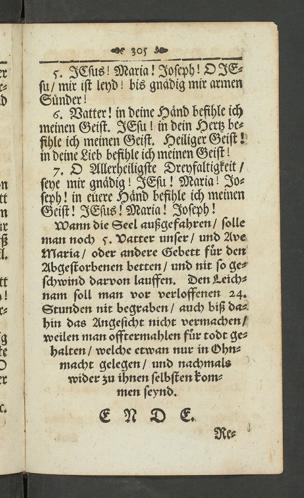 305
5. JEsus! Maria! Joseph! O JE-
su/ mir ist leyd! bis gnädig mir armen
Sünder!
6. Vatter! in deine Händ befihle ich
meinen Geist. JEsu! in dein Hertz be-
fihle ich meinen Geist. Heiliger Geist!
in deine Lieb befihle ich meinen Geist!
7. O Allerheiligste Dreyfaltigkeit/
seye mir gnädig! JEsu! Maria! Jo-
seph! in euere Händ befihle ich meinen
Geist! JEsus! Maria! Joseph!
Wann die Seel außgefahren/ solle
man noch 5. Vatter unser/ und Ave
Maria/ oder andere Gebett für den
Abgestorbenen betten/ und nit so ge-
schwind darvon lauffen. Den Leich-
nam soll man vor verloffenen 24.
Stunden nit begraben/ auch biß da-
hin das Angesicht nicht vermachen/
weilen man offtermahlen für todt ge-
halten/ welche etwan nur in Ohn-
macht gelegen/ und nachmals
wider zu ihnen selbsten kom-
men seynd.
E N D E.
Re-